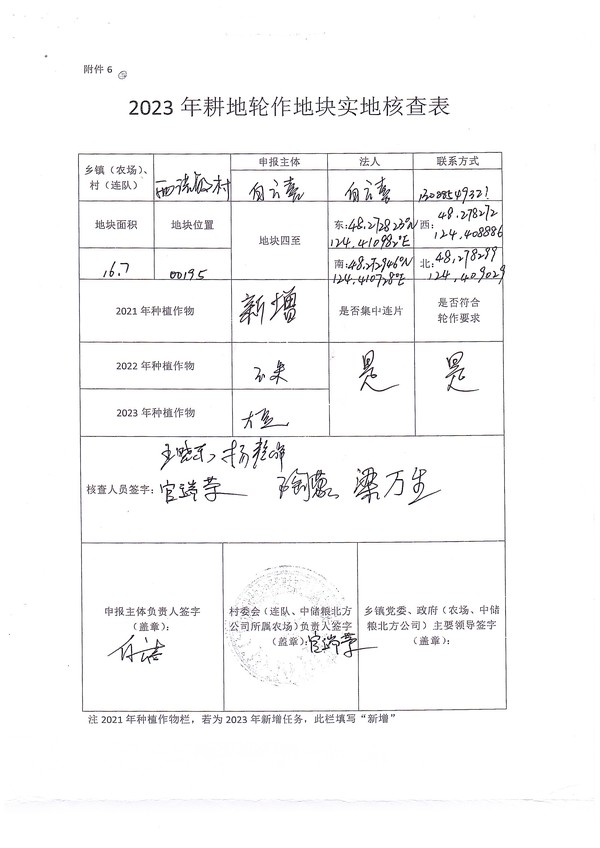 附件 6
2023 年耕地轮作地块实地核查表
乡镇（农场）、
村（连队）
村
申报主体
法人
联系方式
白云喜
白云喜
地块面积
地块位置
地块四至
东:48.272823°N
124.410982°E
西:48.278272
124.408886
16.7
00195
南:48.272946°N
124.410728°E
北:48.278299
124.409029
2021 年种植作物
新增
是否集中连片
是否符合
轮作要求
2022 年种植作物
玉米
是
是
2023 年种植作物
大豆
核查人员签字:
王晓东
官瑞荣
梁万生
申报主体负责人签字
（盖章）:
村委会（连队、中储粮北方
公司所属农场）负责人签字
（盖章）:官瑞荣
乡镇党委、政府（农场、中储
粮北方公司）主要领导签字
（盖章）:
注 2021 年种植作物栏，若为 2023 年新增任务，此栏填写“新增”